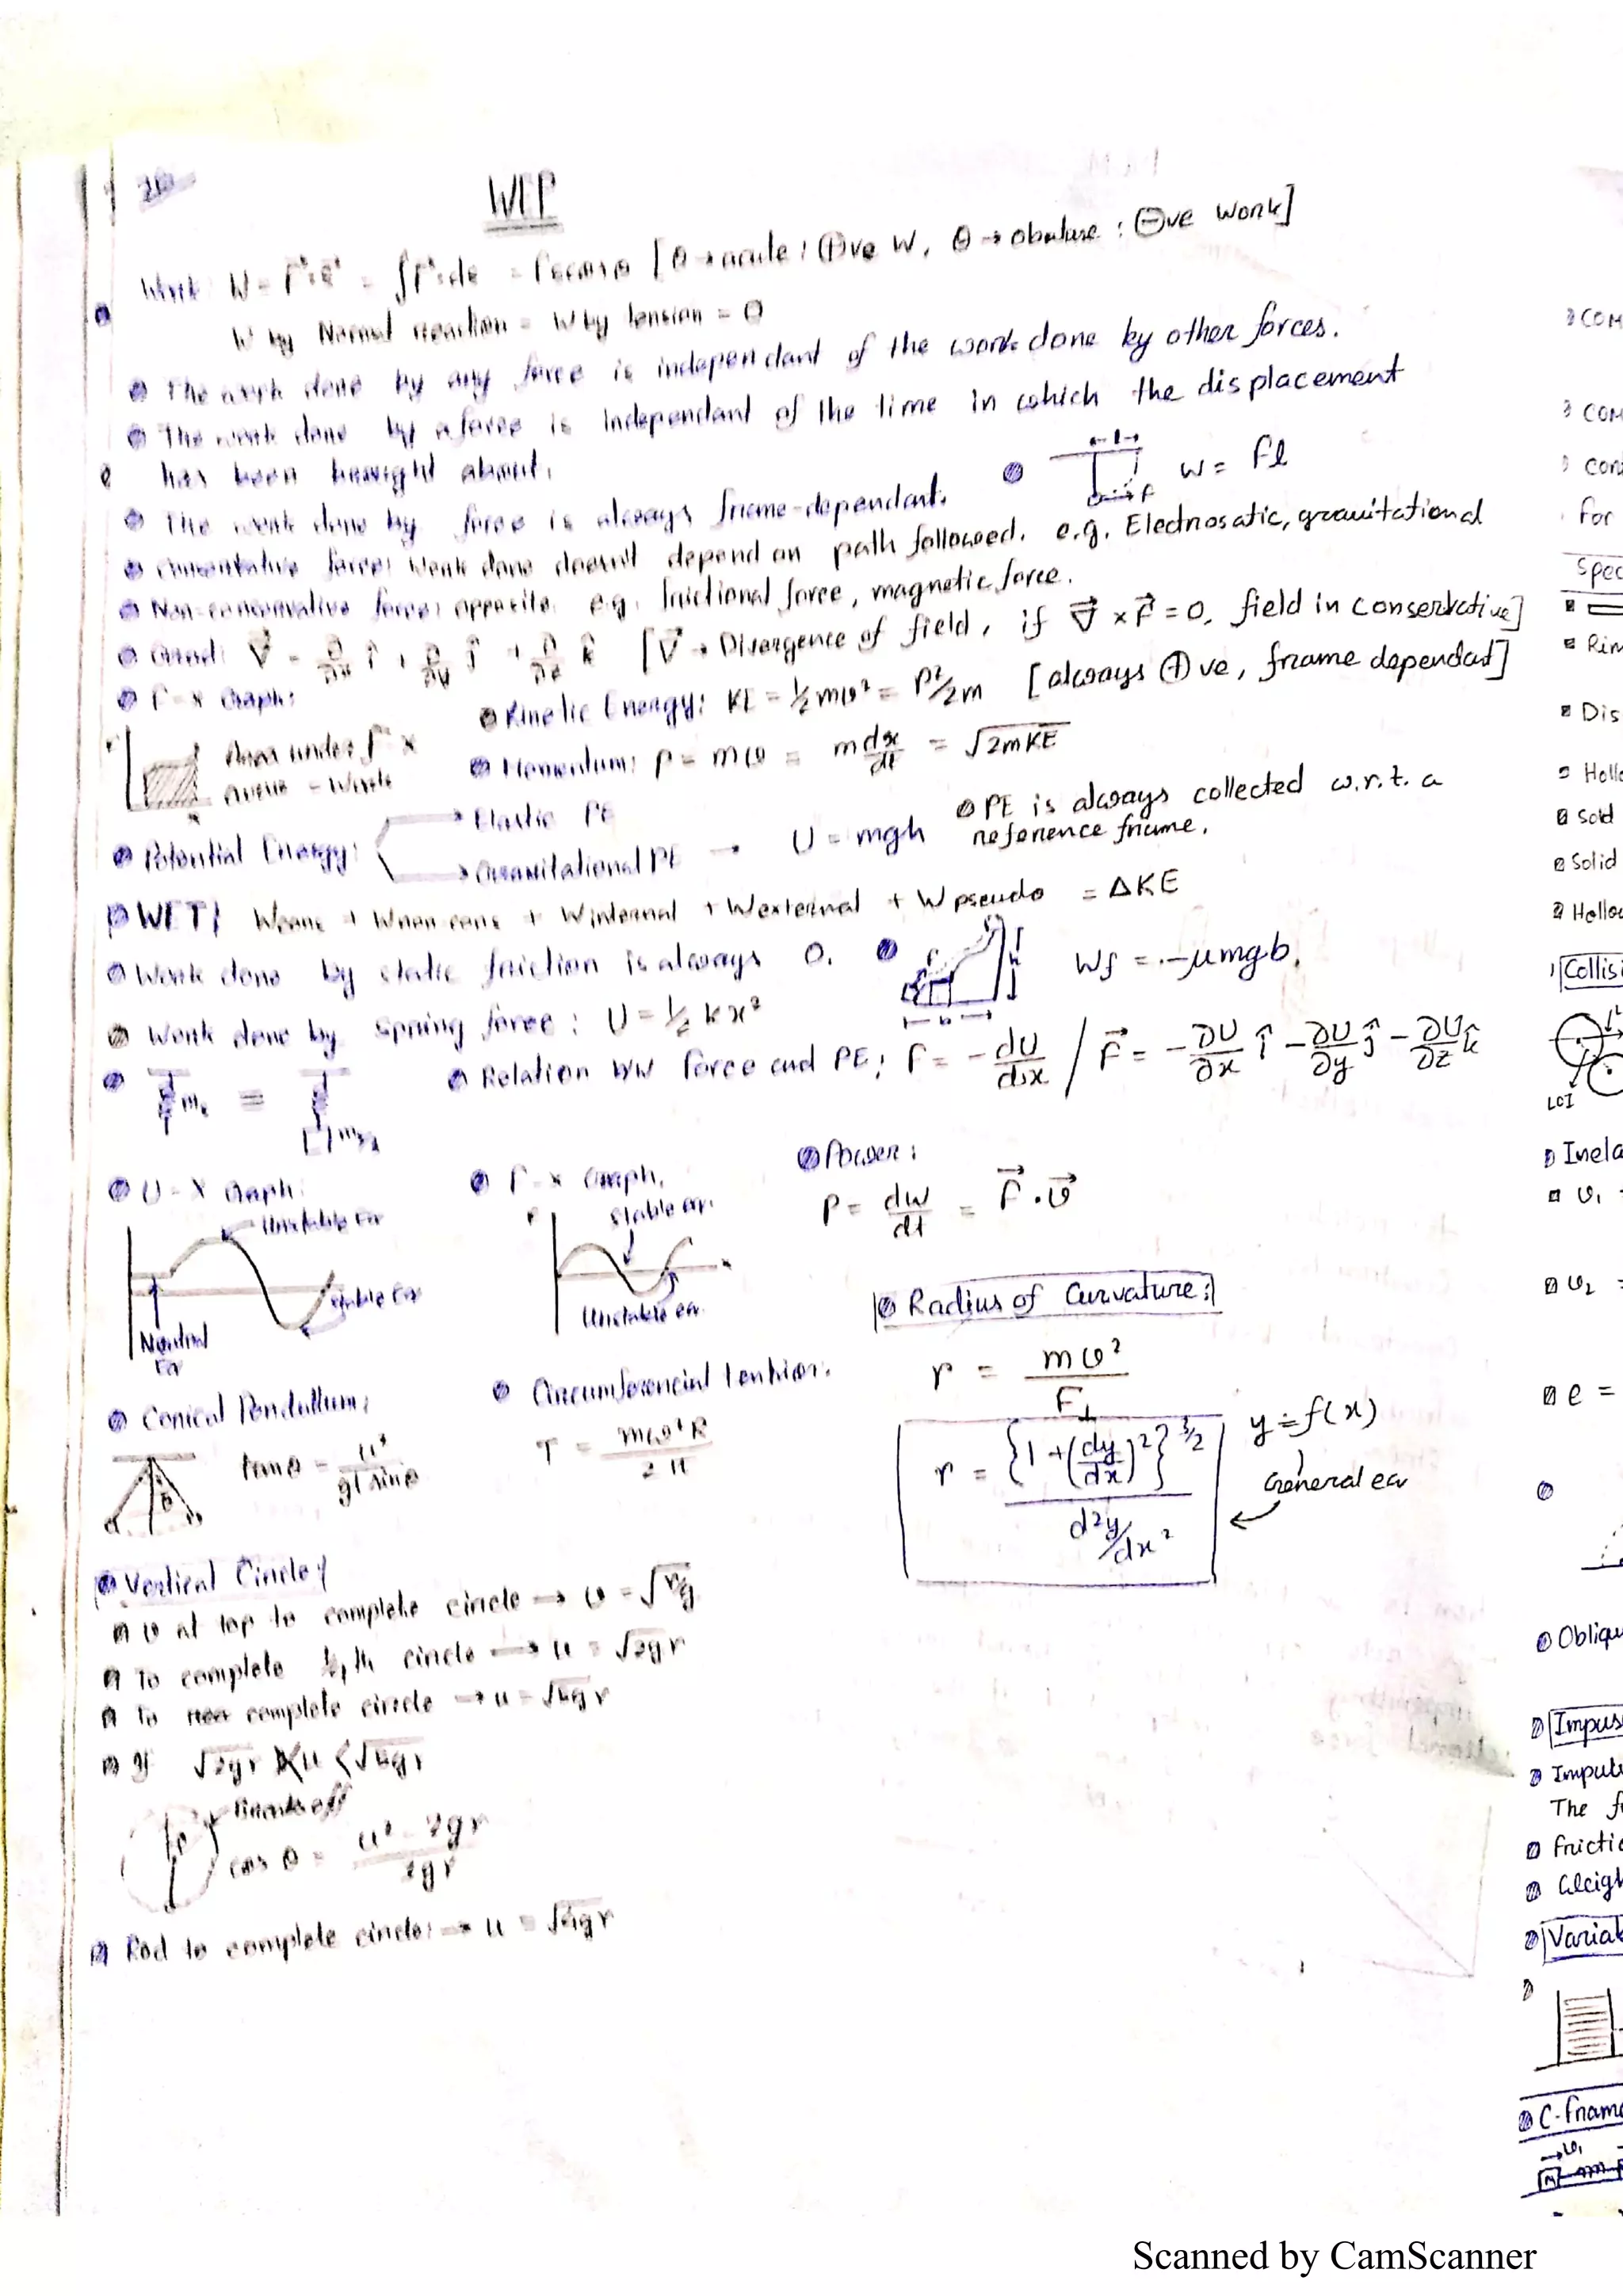 WEP
Work: W = F.s = ∫F.ds = Fscosθ [θ → acute: ⊕ve W, θ → obutuse: ⊖ve work]
W by Normal reaction = W by tension = 0
The work done by any force is independant of the work done by other forces.
The work done by a force is independant of the time in which the displacement
has been brought about.
W = Fl
The work done by force is always frame-dependant.
Conservative force: Work done doesn't depend on path followed. e.g. Electrosatic, gravitational
Non-conservative force: opposite. e.g. frictional force, magnetic force.
Grad: ∇ = ∂/∂x î + ∂/∂y ĵ + ∂/∂z k̂ [∇ → Divergence of field, if ∇ × F = 0, field in conservative]
F-x Graph:
Area under F-x
curve = Work
Kinetic Energy: KE = ½mv² = P²/2m [always ⊕ve, frame dependat]
Momentum: P = mv = m dx/dt = √2mKE
Potential Energy:
Elastic PE
Gravitational PE → U = mgh
PE is always collected w.r.t. a
reference frame.
WET: Wcons + Wnon cons + Winternal + Wexternal + Wpseudo = ΔKE
Work done by static friction is always 0.
b
Wf = -μmgb.
Work done by spring force: U = ½kx²
Relation b/w force and PE: F = -dU/dx / F = -∂U/∂x î - ∂U/∂y ĵ - ∂U/∂z k̂
U-X Graph:
Unstable Eq
Stable Eq
Neutral
Eq
F-x Graph.
Stable eq.
Unstable eq.
Power:
P = dw/dt = F.v
Radius of Curvature:
r = mv²/F⊥
r = {1+(dy/dx)²}^3/2 / d²y/dx²
y = f(x)
General eq
Conical Pendullum:
tanθ = u²/gl sinθ
Circumferencial tention:
T = mω²R/2π
Vertical Circle:
v at top to complete circle → v = √rg
To complete ¼th circle → u = √2gr
To complete circle → u = √5gr
If √2gr < u < √5gr
Breaks off
cos θ = u² - 2gr / 3gr
Rod to complete circle: → u = √4gr
COM
COM
Con
for
Spec
Rin
Dis
Hollo
Solid
Solid
Hollo
Collisi
LOI
Inela
v₁ =
v₂ =
e =
Obliqu
Impus
Impuls
The f
Frictio
Weigh
Variab
C-frame
v₁
M
Scanned by CamScanner